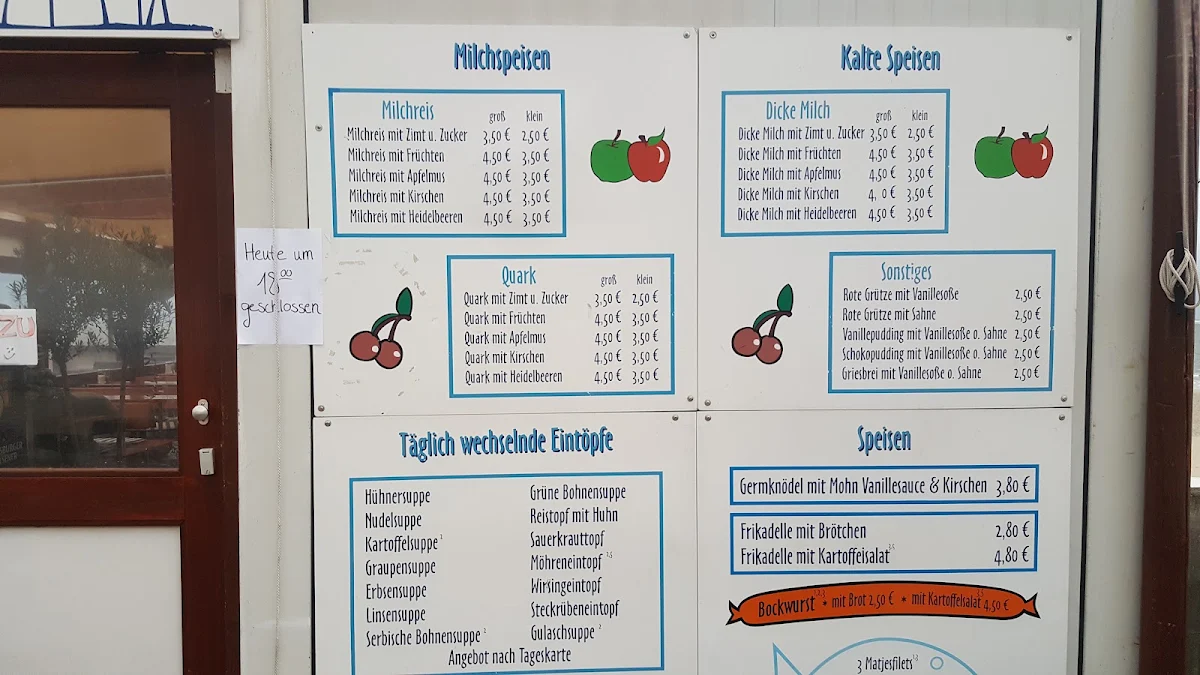 Heute um
18,00
geschlossen
ZU
Milchspeisen
Milchreis
groß klein
Milchreis mit Zimt u. Zucker 3,50 € 2,50 €
Milchreis mit Früchten 4,50 € 3,50 €
Milchreis mit Apfelmus 4,50 € 3,50 €
Milchreis mit Kirschen 4,50 € 3,50 €
Milchreis mit Heidelbeeren 4,50 € 3,50 €
Quark
groß klein
Quark mit Zimt u. Zucker 3,50 € 2,50 €
Quark mit Früchten 4,50 € 3,50 €
Quark mit Apfelmus 4,50 € 3,50 €
Quark mit Kirschen 4,50 € 3,50 €
Quark mit Heidelbeeren 4,50 € 3,50 €
Kalte Speisen
Dicke Milch
groß klein
Dicke Milch mit Zimt u. Zucker 3,50 € 2,50 €
Dicke Milch mit Früchten 4,50 € 3,50 €
Dicke Milch mit Apfelmus 4,50 € 3,50 €
Dicke Milch mit Kirschen 4, 0 € 3,50 €
Dicke Milch mit Heidelbeeren 4,50 € 3,50 €
Sonstiges
Rote Grütze mit Vanillesoße 2,50 €
Rote Grütze mit Sahne 2,50 €
Vanillepudding mit Vanillesoße o. Sahne 2,50 €
Schokopudding mit Vanillesoße o. Sahne 2,50 €
Griesbrei mit Vanillesoße o. Sahne 2,50 €
Täglich wechselnde Eintöpfe
Hühnersuppe
Nudelsuppe
Kartoffelsuppe
Graupensuppe
Erbsensuppe
Linsensuppe
Serbische Bohnensuppe
Grüne Bohnensuppe
Reistopf mit Huhn
Sauerkrauttopf
Möhreneintopf
Wirsingeintopf
Steckrübeneintopf
Gulaschsuppe
Angebot nach Tageskarte
Speisen
Germknödel mit Mohn Vanillesauce & Kirschen 3,80 €
Frikadelle mit Brötchen 2,80 €
Frikadelle mit Kartoffelsalat 4,80 €
Bockwurst * mit Brot 2,50 € * mit Kartoffelsalat 4,50 €
3 Matjesfilets